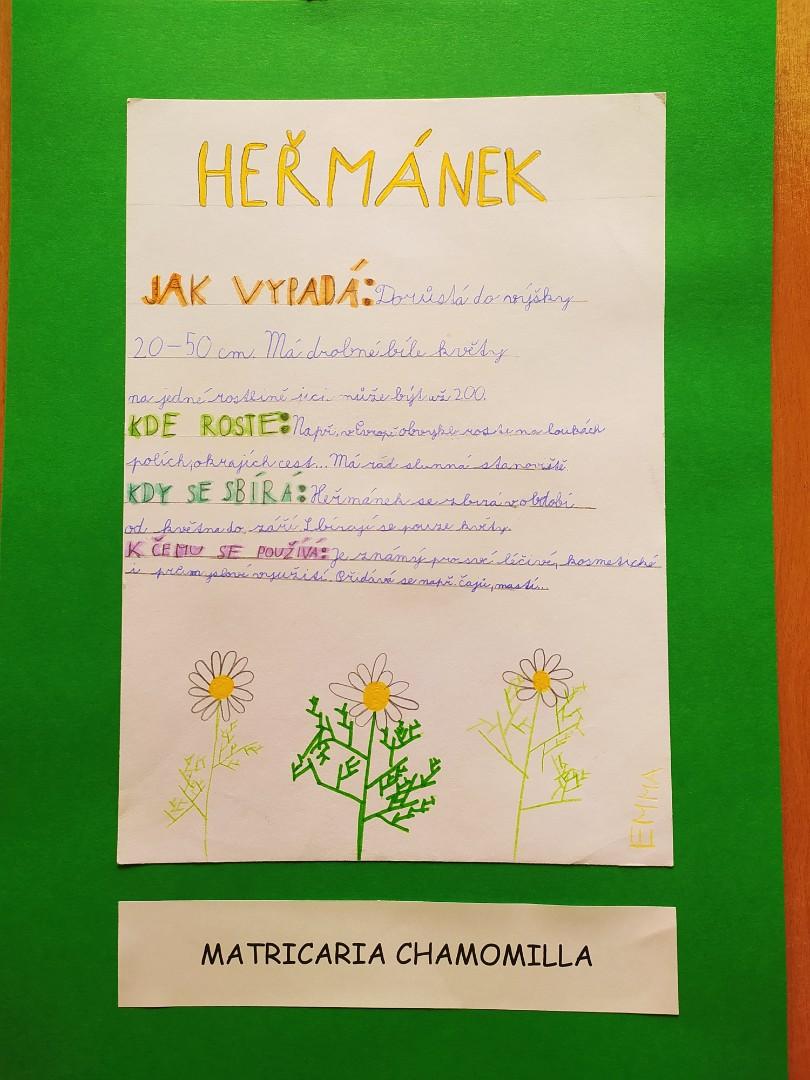 HEŘMÁNEK
JAK VYPADÁ: Dorůstá do výšky
20-50 cm. Má drobné bíle květy
na jedné rostlině jici může být až 200.
KDE ROSTE: Např. v Evropě obvykle roste na loukách
polích, okrajích cest... Má rád slunná stanoviště.
KDY SE SBÍRÁ: Heřmánek se sbírá v období
od května do září. Sbírají se pouze květy.
K ČEMU SE POUŽÍVÁ: Je známý pro své léčivé, kosmetické
i využití. Přidává se např. čajů, mastí...
EMMA
MATRICARIA CHAMOMILLA